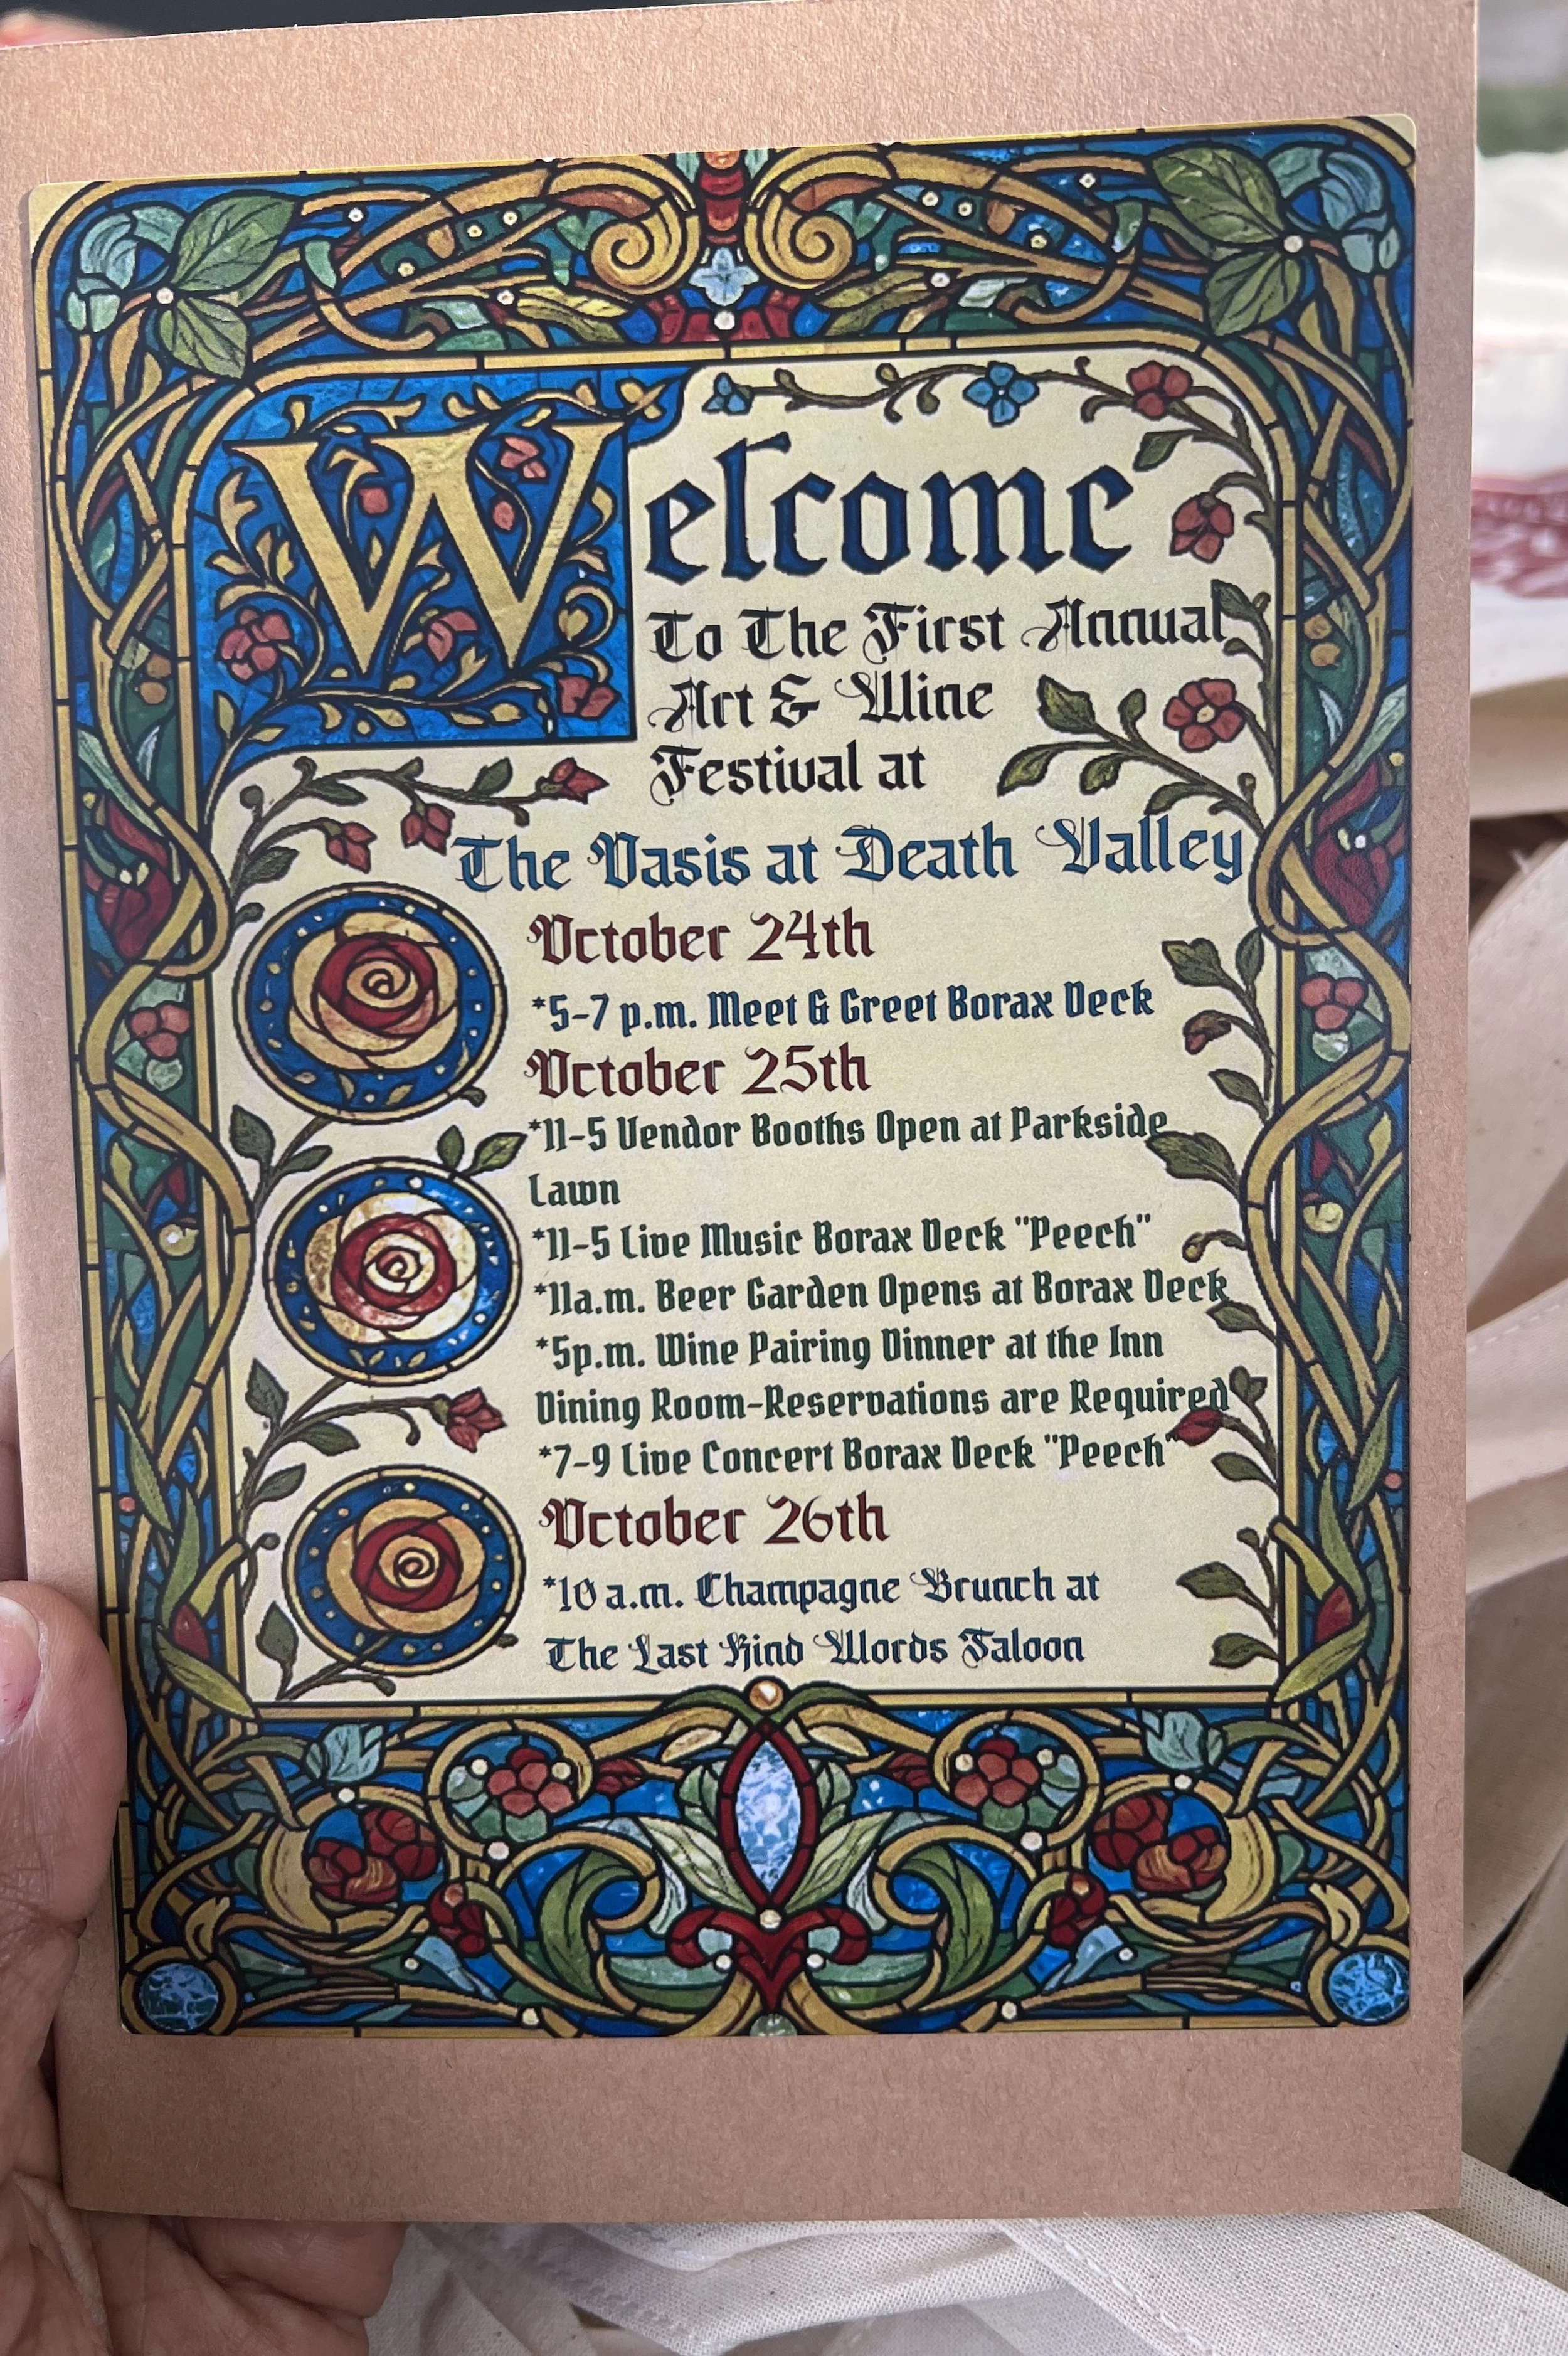 Welcome
To The First Annual
Art & Wine
Festival at
The Oasis at Death Valley
October 24th
*5-7 p.m. Meet & Greet Borax Deck
October 25th
*11-5 Vendor Booths Open at Parkside
Lawn
*11-5 Live Music Borax Deck "Peech"
*11a.m. Beer Garden Opens at Borax Deck
*5p.m. Wine Pairing Dinner at the Inn
Dining Room-Reservations are Required
*7-9 Live Concert Borax Deck "Peech"
October 26th
*10 a.m. Champagne Brunch at
The Last Kind Words Saloon